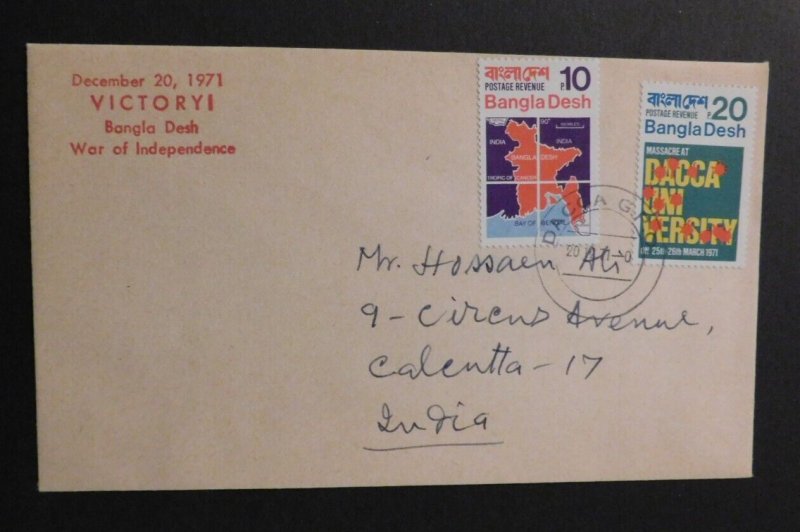 December 20, 1971
VICTORY!
Bangla Desh
War of Independence
বাংলাদেশ 10
POSTAGE REVENUE P.
Bangla Desh
INDIA
90°
INDIA
BANGLA DESH
TROPIC OF CANCER
BAY OF BENGAL
বাংলাদেশ 20
POSTAGE REVENUE P.
Bangla Desh
MASSACRE AT
DACCA
UNI
VERSITY
ON 25th-26th MARCH 1971
DACCA G.P.O.
Mr. Hossaen Ali
9-Circus Avenue,
Calcutta-17
India